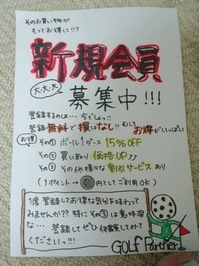 そのお買い物が
もっとお得に!!?
新規会員
大大大
募集中!!!
登録するのは… 今でしょ!!
登録無料で損はなし!! むしろお得がいっぱい
お得
その① ボール1ダース 15%OFF
その② 買い取り価格UP↑↑
その③ その他様々な割引サービスあり
(1ポイント→①円としてご利用OK)
1度登録してお得な気分を味わって
みませんか??
登録してぜひ体験してみて
くださいっ!!!
GOLF Partner